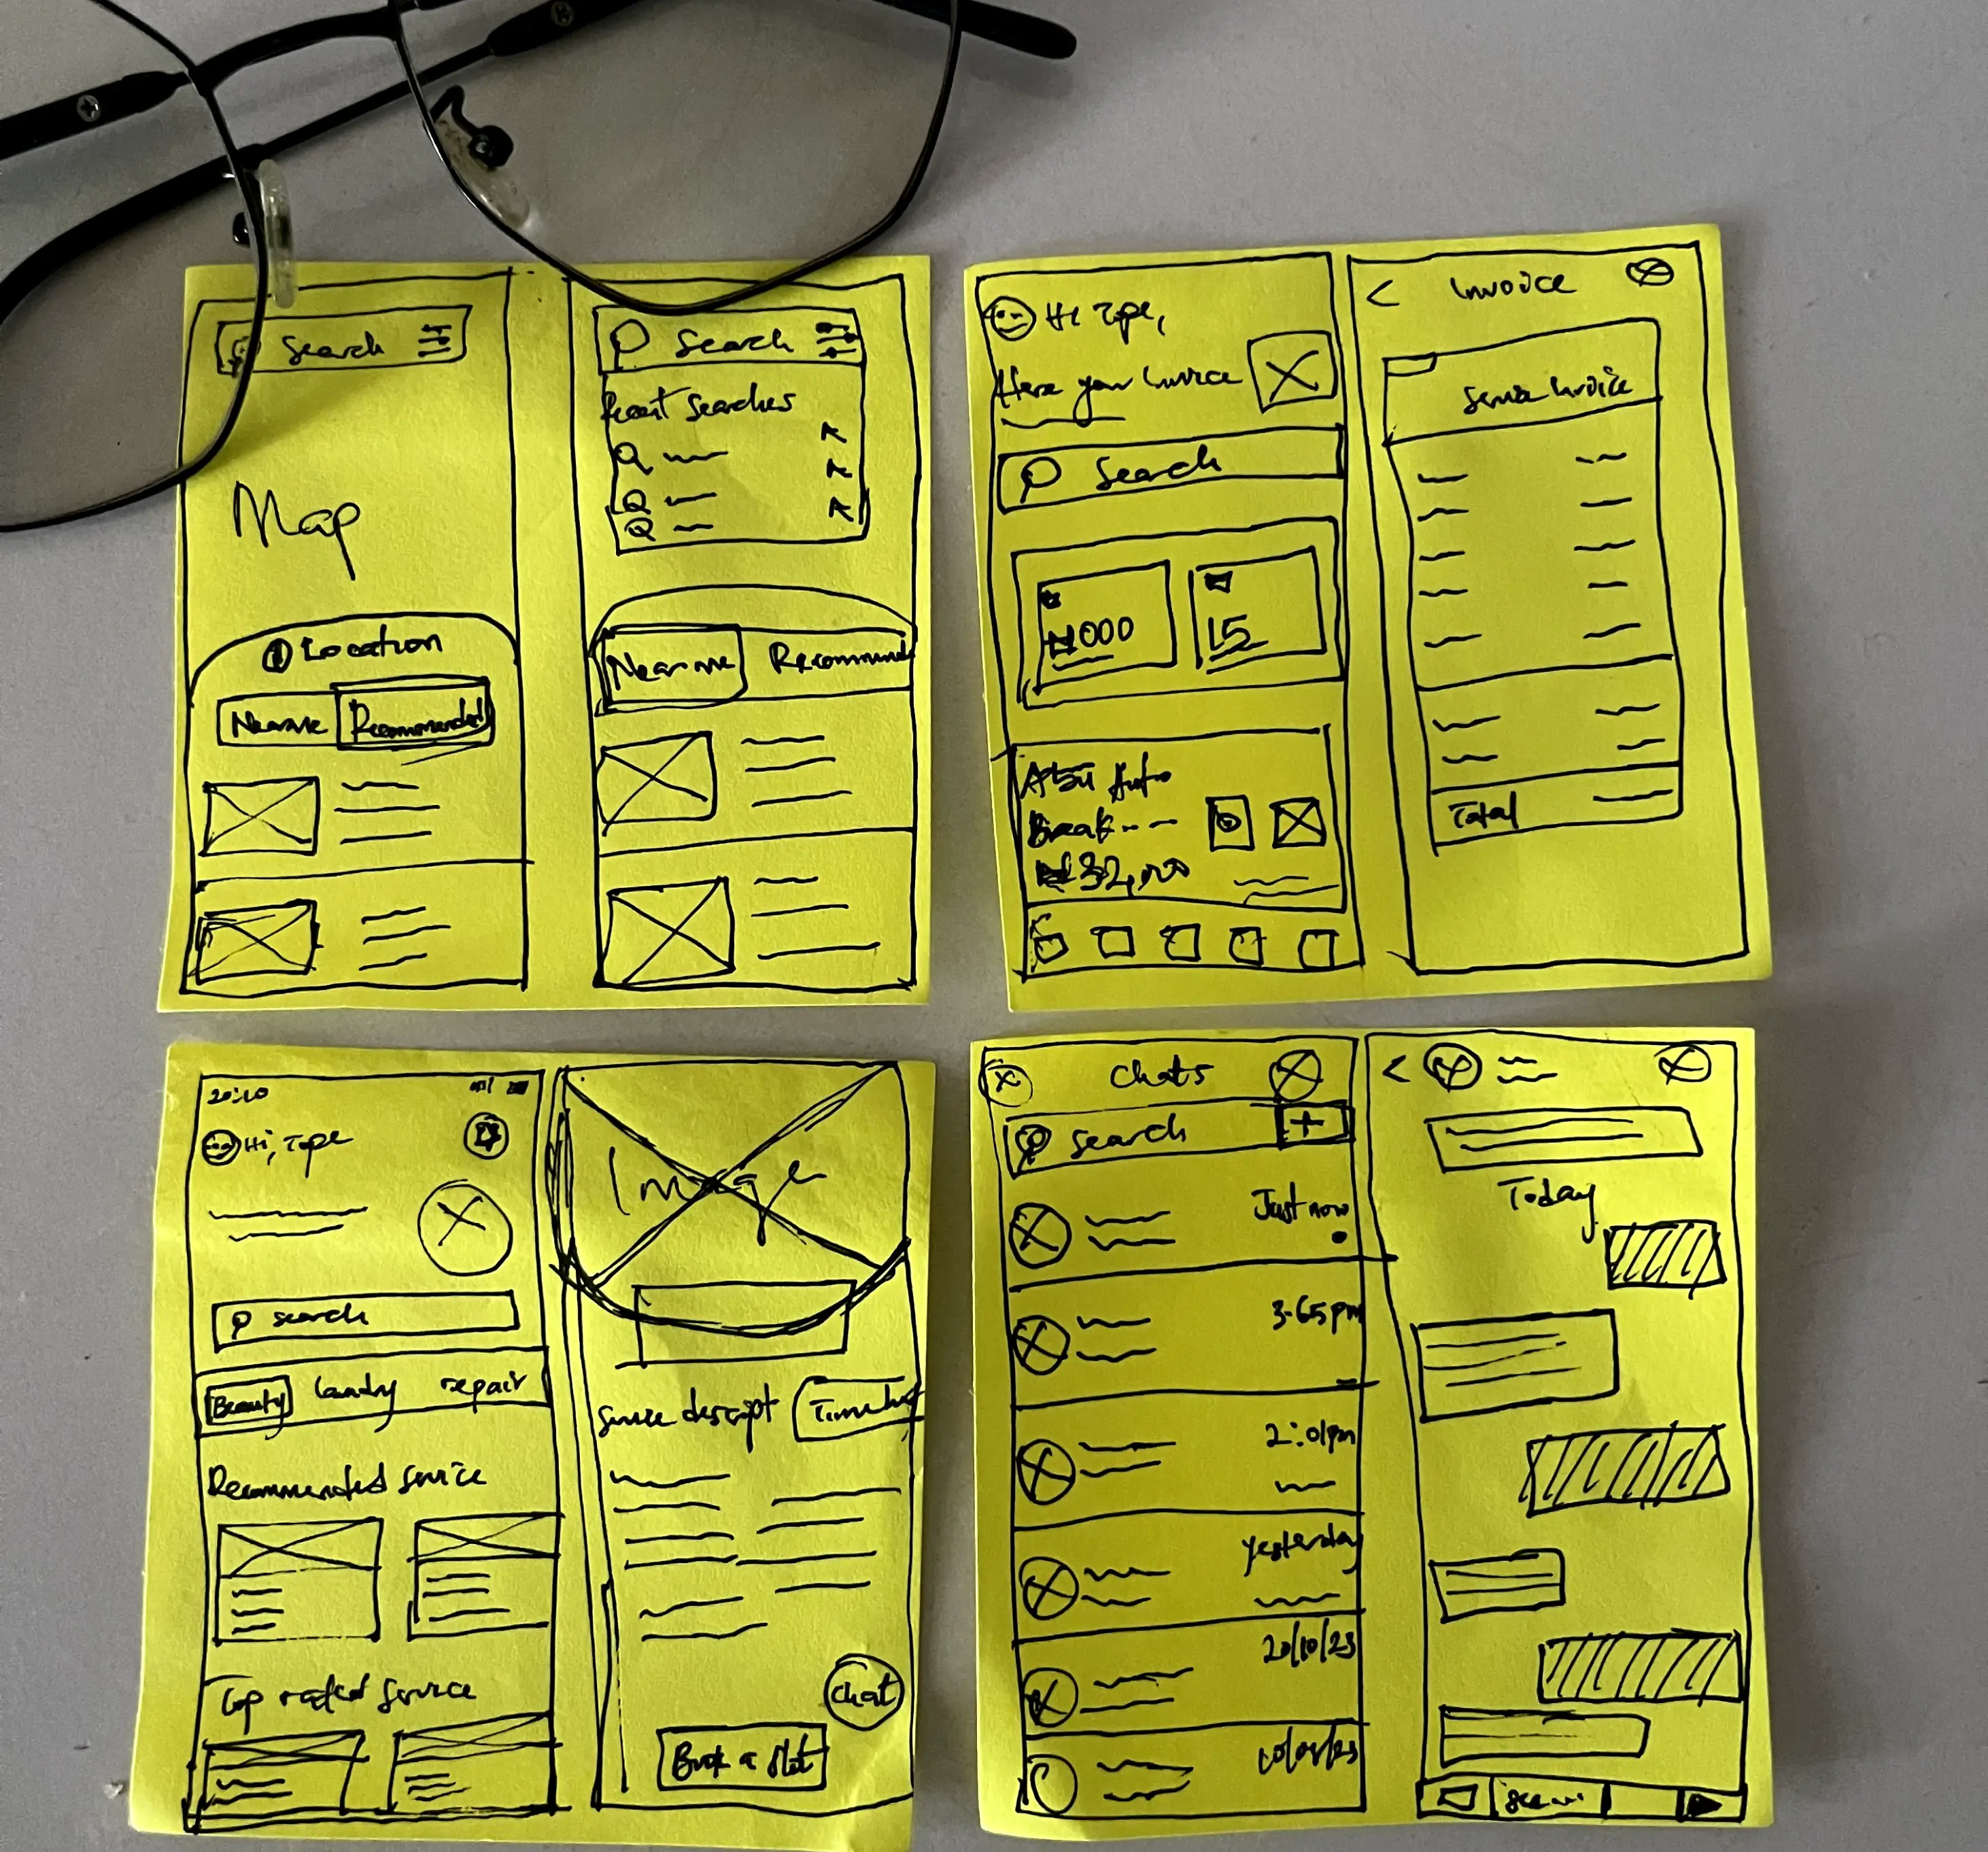 Search
Map
Location
Near me
Recommended
Search
Recent Searches
Near me
Recommend
Hi Tope,
Here your Invoice
Search
₦1000
15
Auto
Break
₦32,000
Invoice
Service Invoice
Total
20:10
Hi, Tope
search
Beauty
laundry
repair
Recommended Service
Top rated Service
Image
Service descript
Chat
Book a slot
Chats
search
+
Just now
3:65pm
2:01pm
yesterday
20/10/23
Today